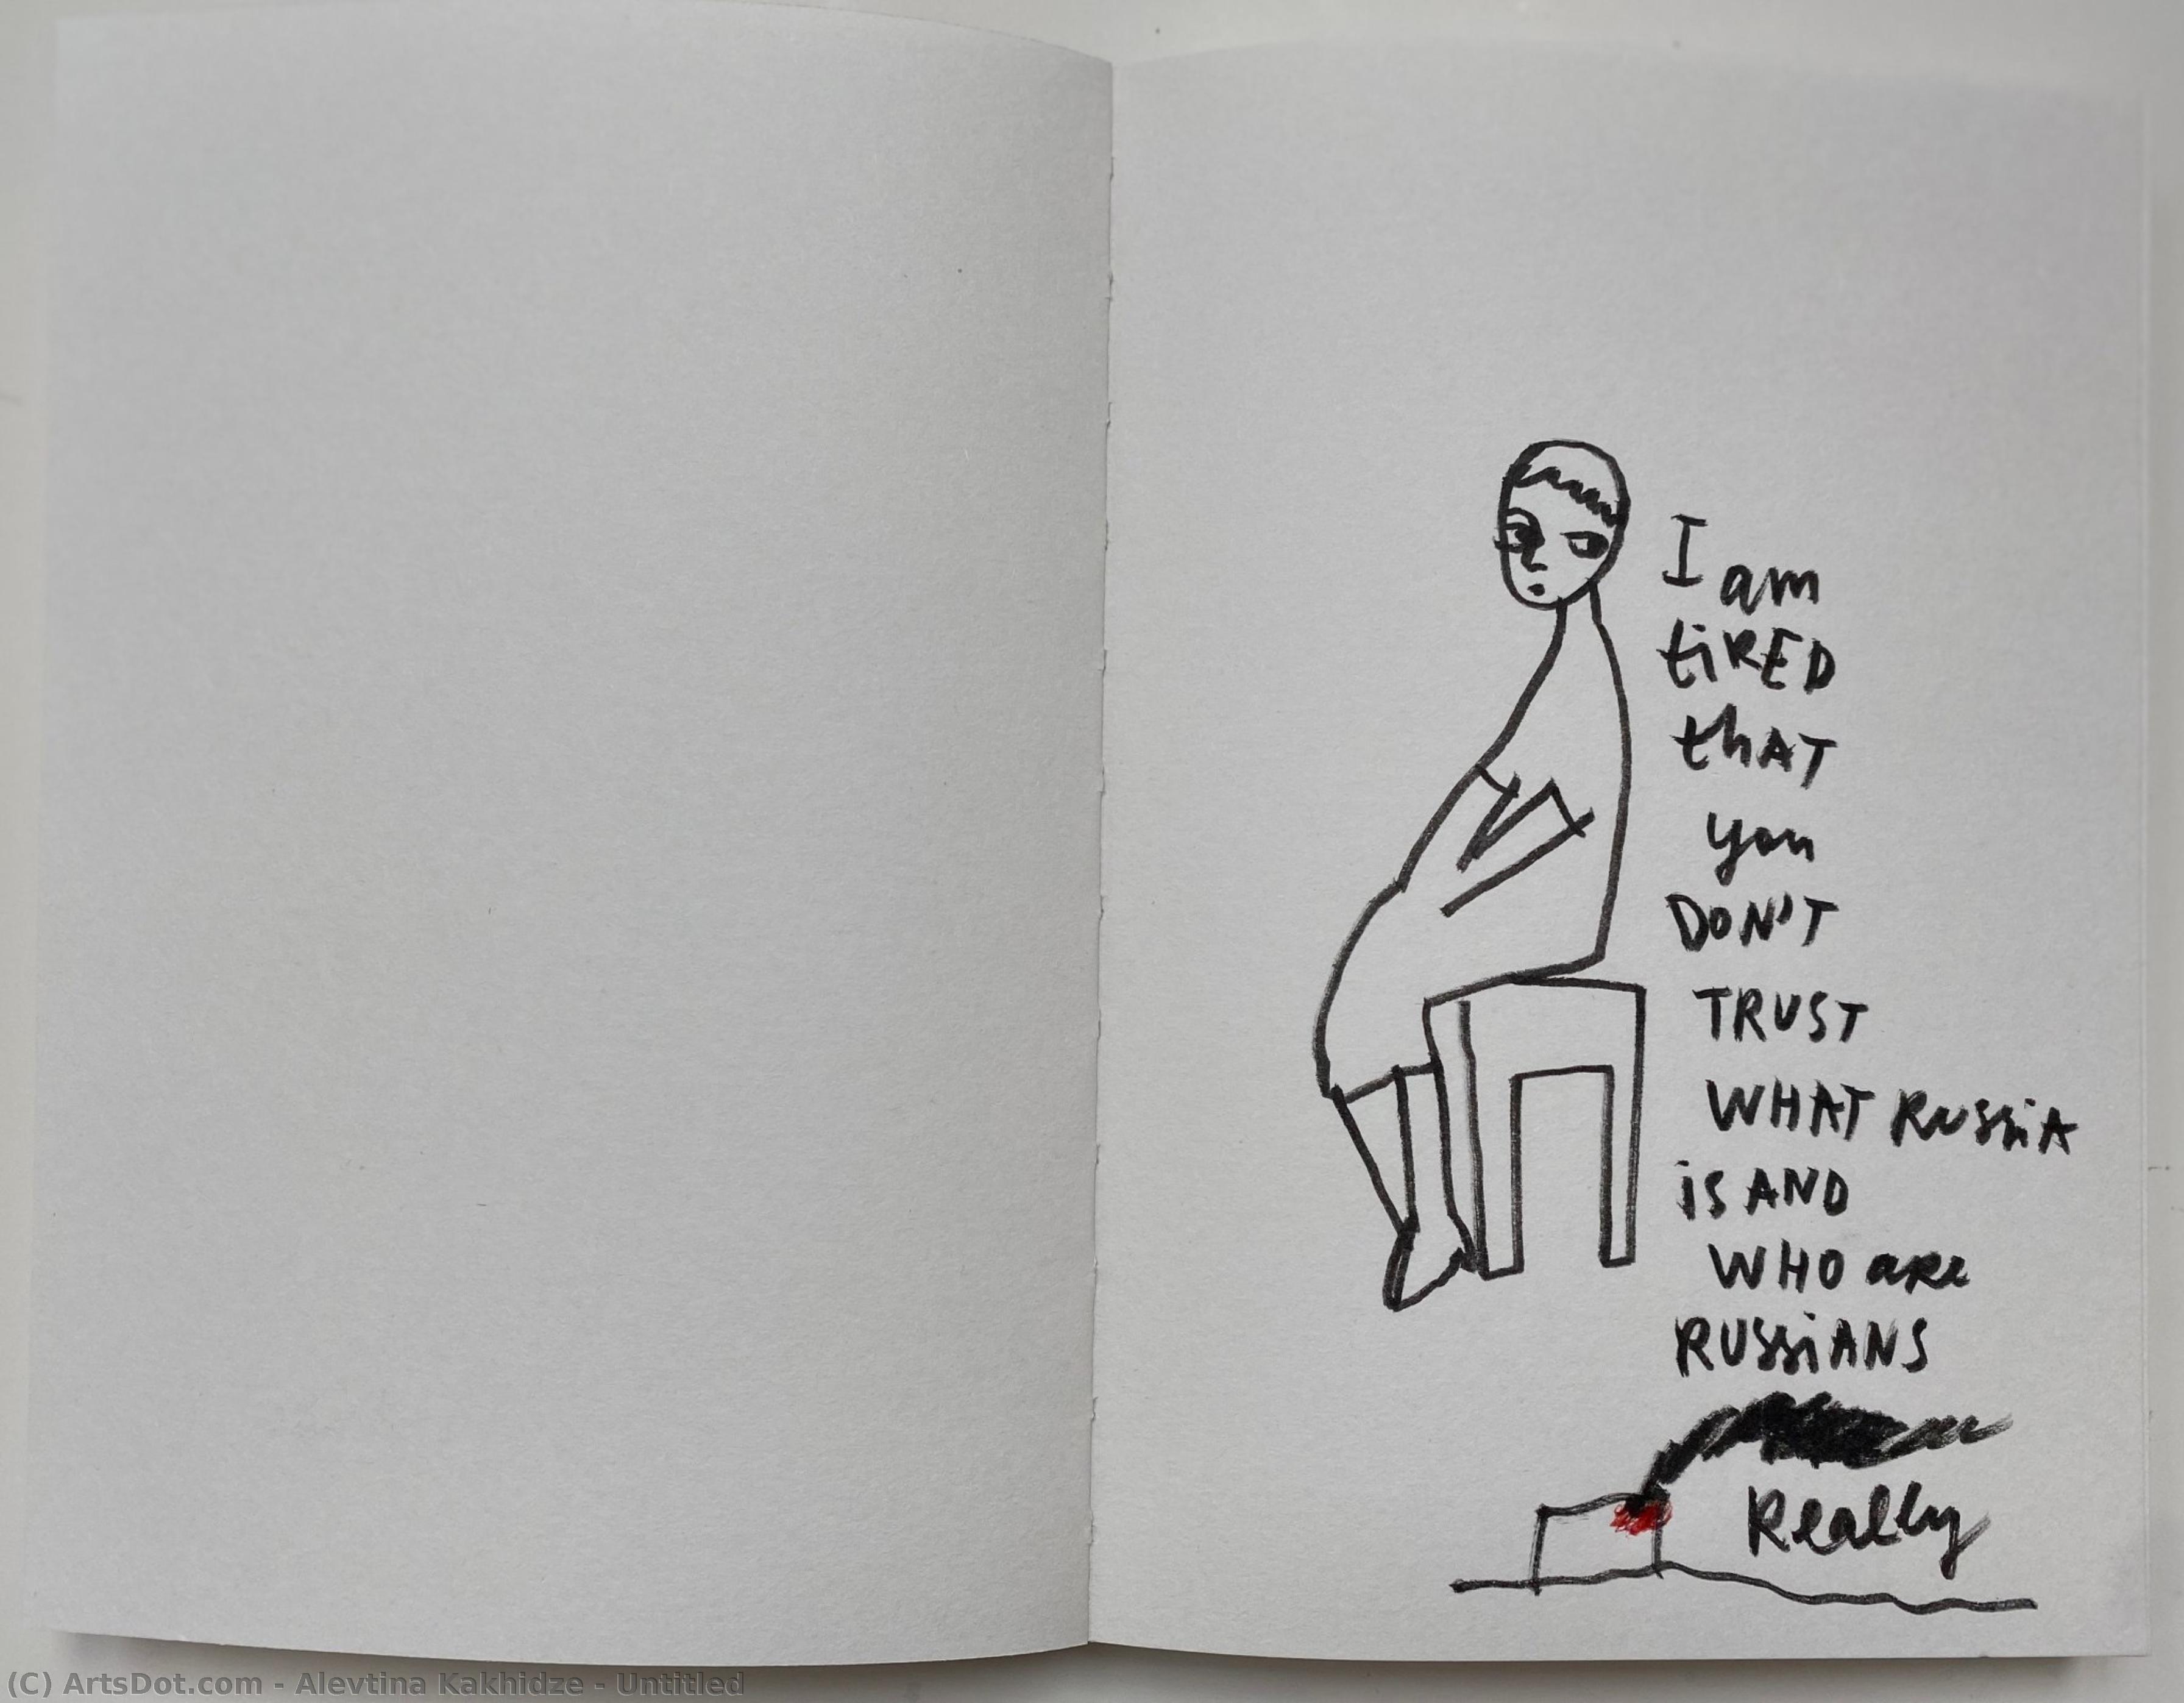 I am
tiRED
thAT
you
DON'T
TRUST
WHAT RUSSiA
iS AND
WHO aRe
RUSSiANS
Really
(C) ArtsDot.com - Alevtina Kakhidze - Untitled